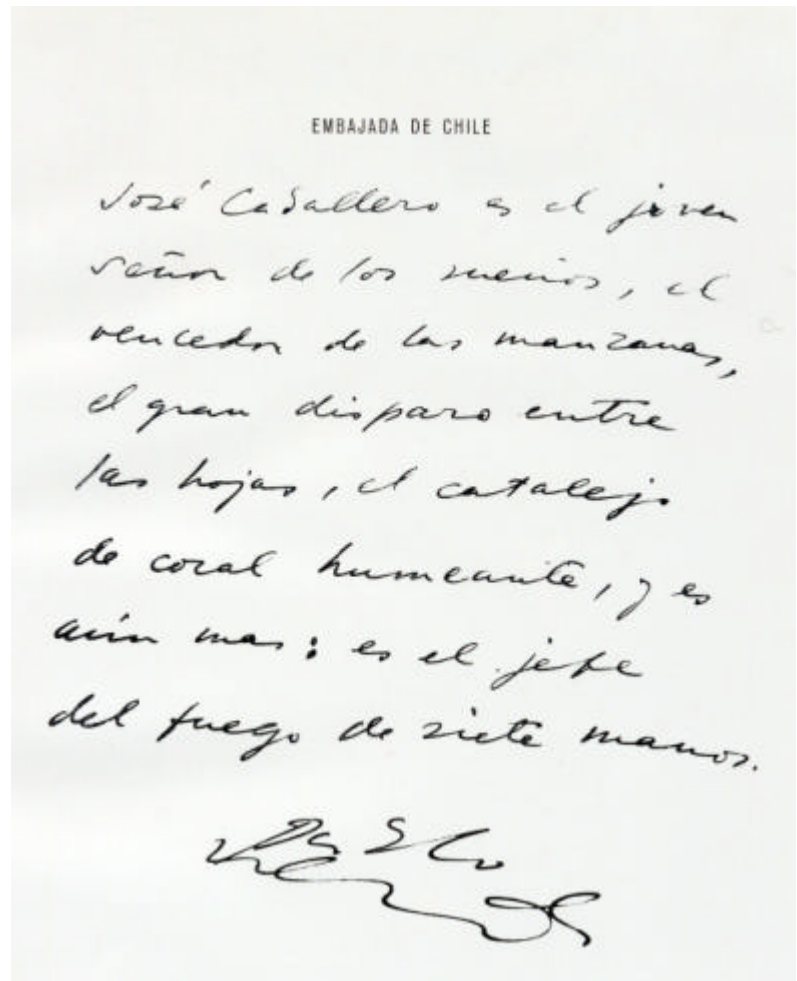 EMBAJADA DE CHILE
José Caballero es el joven
señor de los sueños, el
vencedor de las manzanas,
el gran disparo entre
las hojas, el catalejo
de coral humeante, y es
aún mas: es el jefe
del fuego de siete manos.
Pablo
Neruda